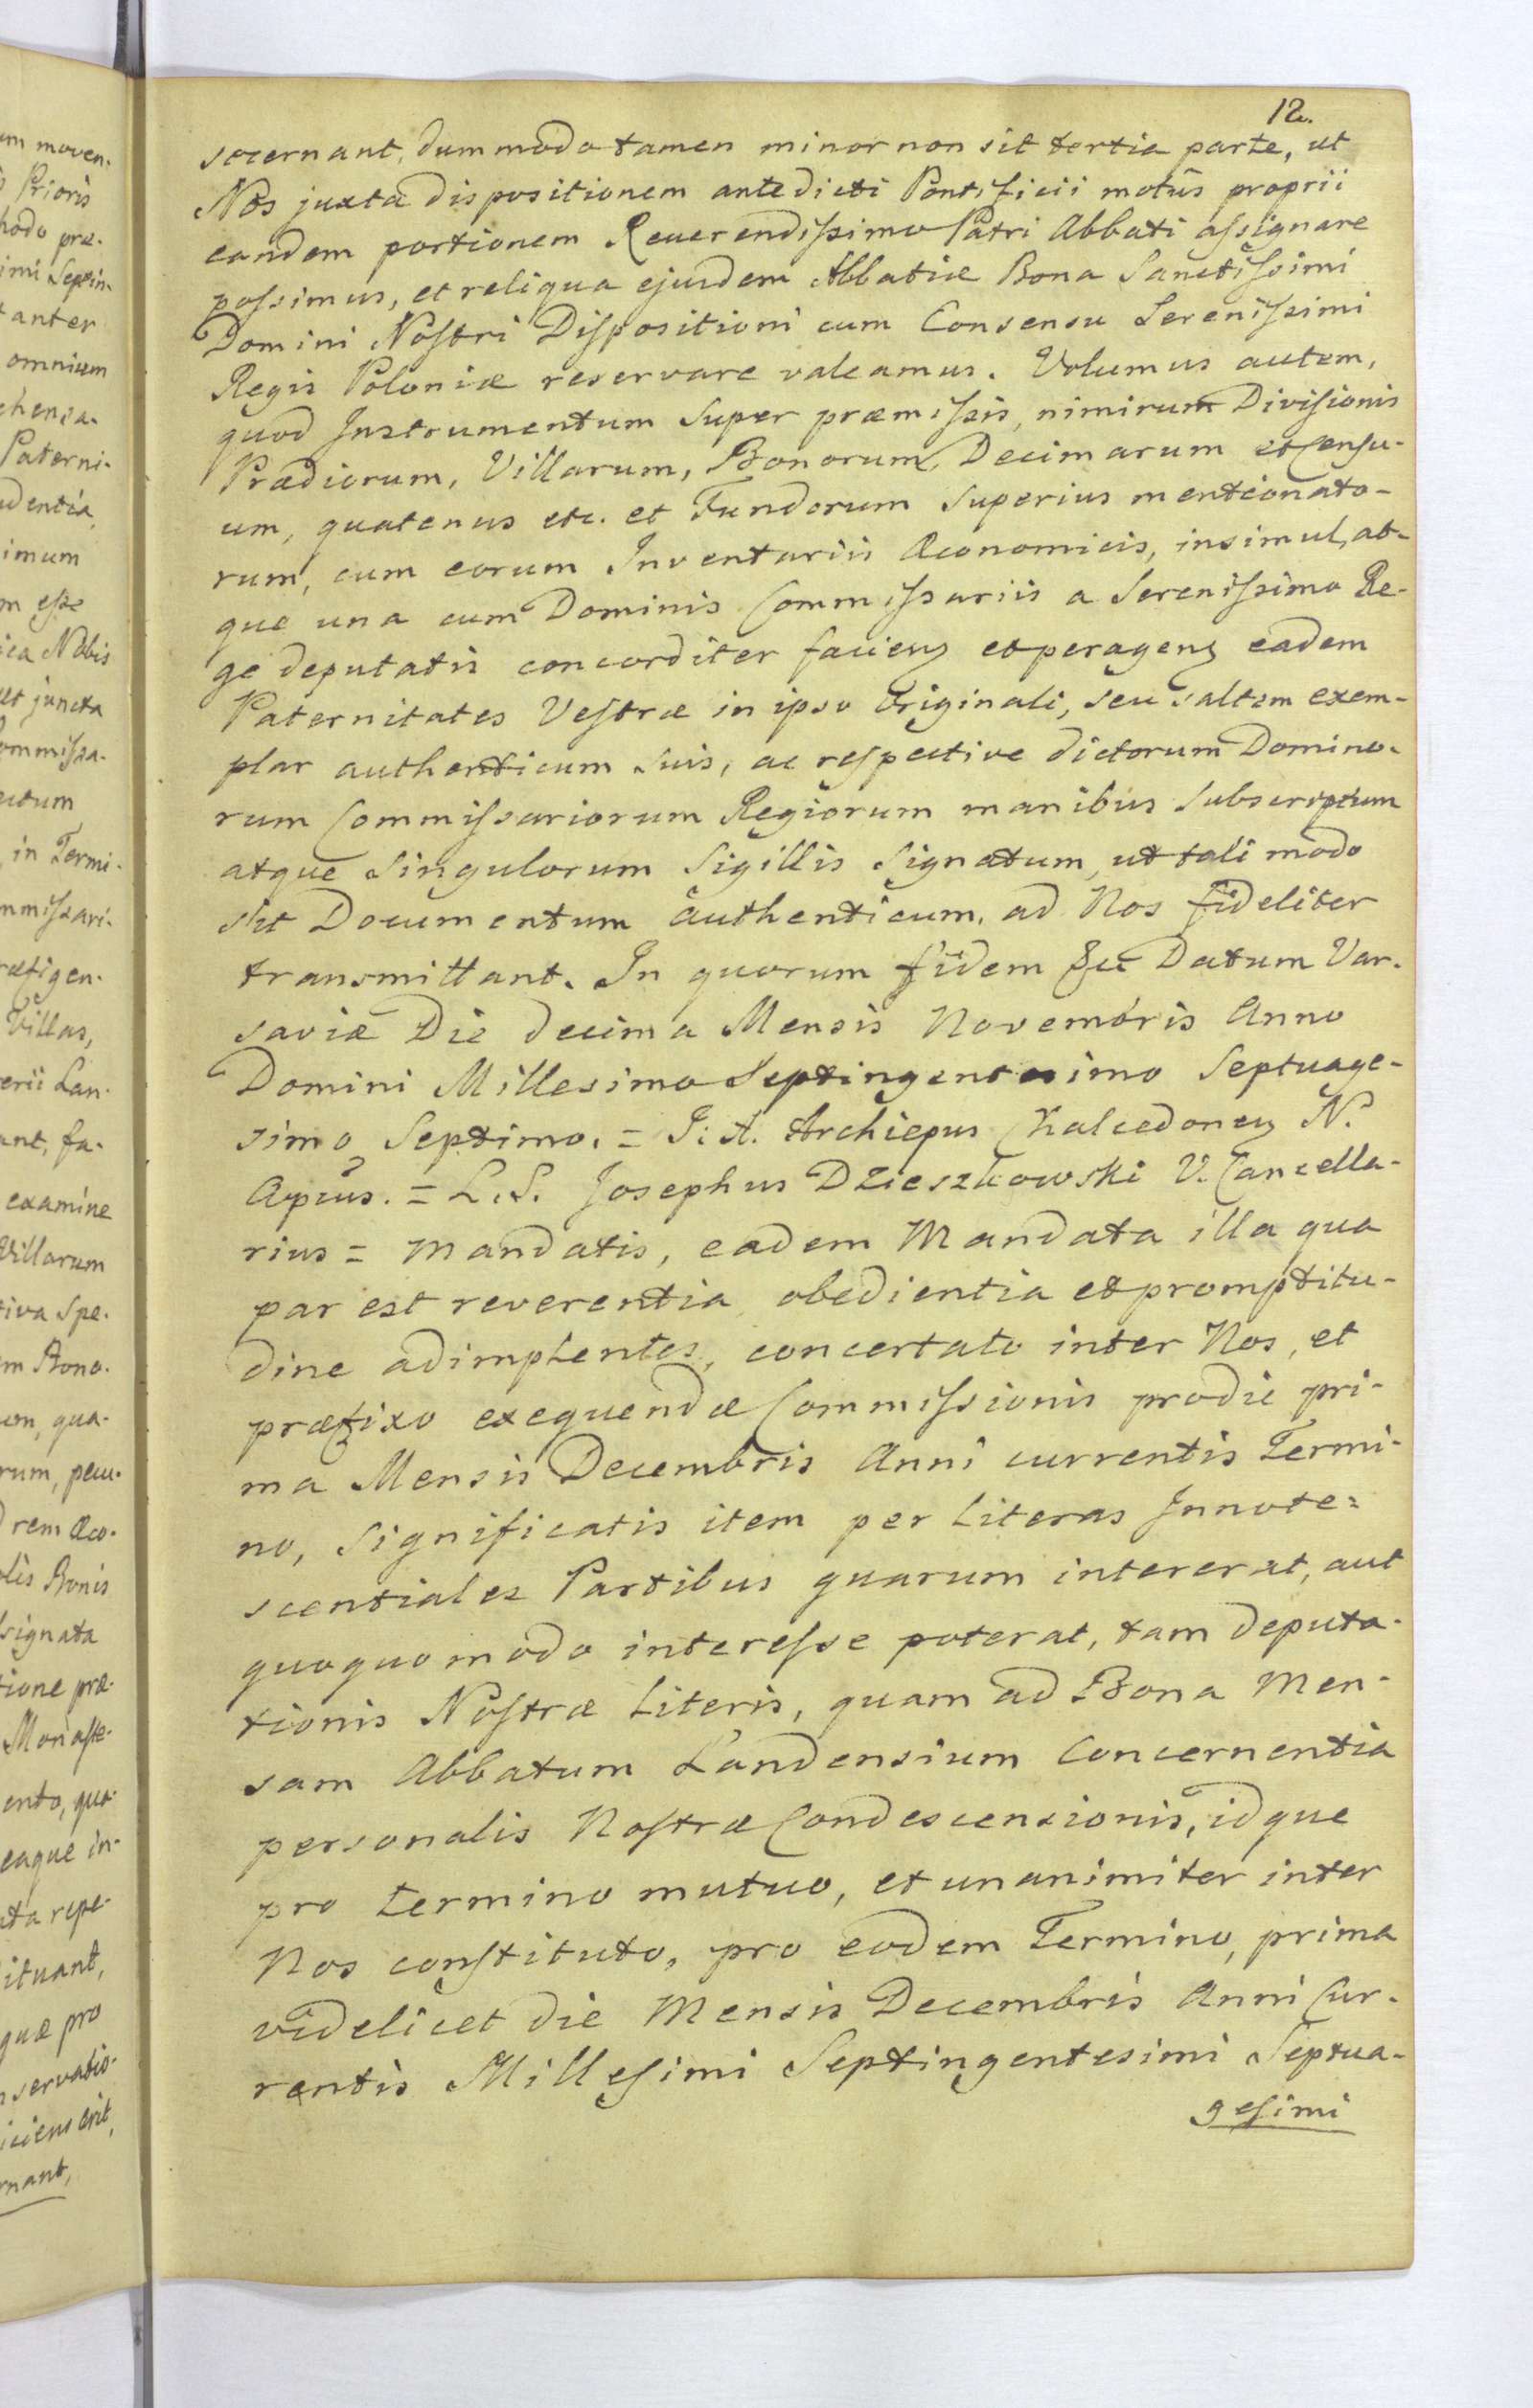 12.
secernant, dummodo tamen minor non sit tertia parte, ut
Nos juxta dispositionem antedicti Pontificii motûs proprii
eandem portionem Reverendissimo Patri Abbati assignare
possimus, et reliqua ejusdem Abbatiæ Bona Sanctissimi
Domini Nostri Dispositioni cum Consensu Serenissimi
Regis Poloniæ reservare valeamus. Volumus autem,
quod Instrumentum super præmissis, nimirum Divisionis
Prædiorum, Villarum, Bonorum, Decimarum et Censu-
um, quatenus etc. et Fundorum superius mentionato-
rum, cum eorum Inventariis Œconomicis, insimul, at-
que una cum Dominis Commissariis a Serenissimo Re-
ge deputatis concorditer faciens et peragens eadem
Paternitates Vestræ in ipso Originali, seu saltem exem-
plar authenticum suis, ac respective dictorum Domino-
rum Commissariorum Regiorum manibus subscriptum
atque singulorum Sigillis signatum, ut tali modo
sit Documentum authenticum, ad Nos fideliter
transmittant. In quorum fidem &c Datum Var-
saviæ Die decima Mensis Novembris Anno
Domini Millesimo Septingentesimo Septuage-
simo Septimo. = J: A. Archiepus Chalcedonens N.
Aplcus. = L.S. Josephus Dzieszkowski V. Cancella-
rius = mandatis, eadem Mandata illa qua
par est reverentia, obedientia et promptitu-
dine adimplentes, concertato inter Nos, et
præfixo exequendæ Commissionis pro die pri-
ma Mensis Decembris Anni currentis Termi-
no, significatis item per literas Innote=
scentiales Partibus quarum intererat, aut
quoquomodo interesse poterat, tam deputa-
tionis Nostræ literis, quam ad Bona Men-
sam Abbatum Landensium Concernentia
personalis Nostræ Condescensionis, idque
pro termino mutuo, et unanimiter inter
Nos constituto, pro eodem Termino, prima
videlicet die Mensis Decembris Anni Cur-
rentis Millesimi Septingentesimi Septua-
gesimi